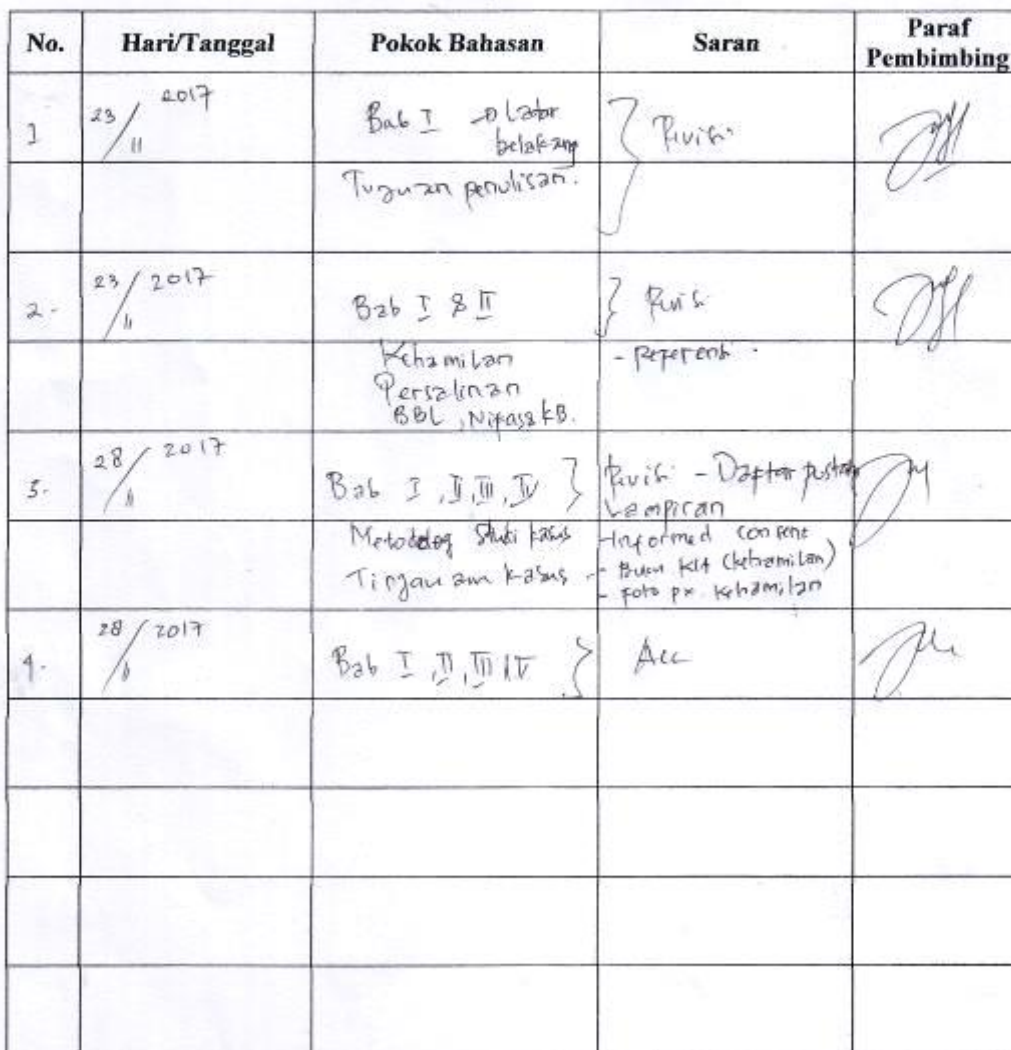 No. Hari/Tanggal Pokok Bahasan Saran Paraf Pembimbing
1 23/11 2017 Bab I → Latar belakang } Revisi
Tujuan penulisan.
2. 23/11 2017 Bab I & II } Revisi
Kehamilan - Referensi.
Persalinan
BBL, Nifas, KB.
3. 28/11 2017 Bab I, II, III, IV } Revisi - Daftar pustaka
Lampiran
Metodelog Studi kasus - Informed consent
Tinjauan kasus - Buku KIA (kehamilan)
- Foto px. kehamilan
4. 28/11 2017 Bab I, II, III, IV } Acc